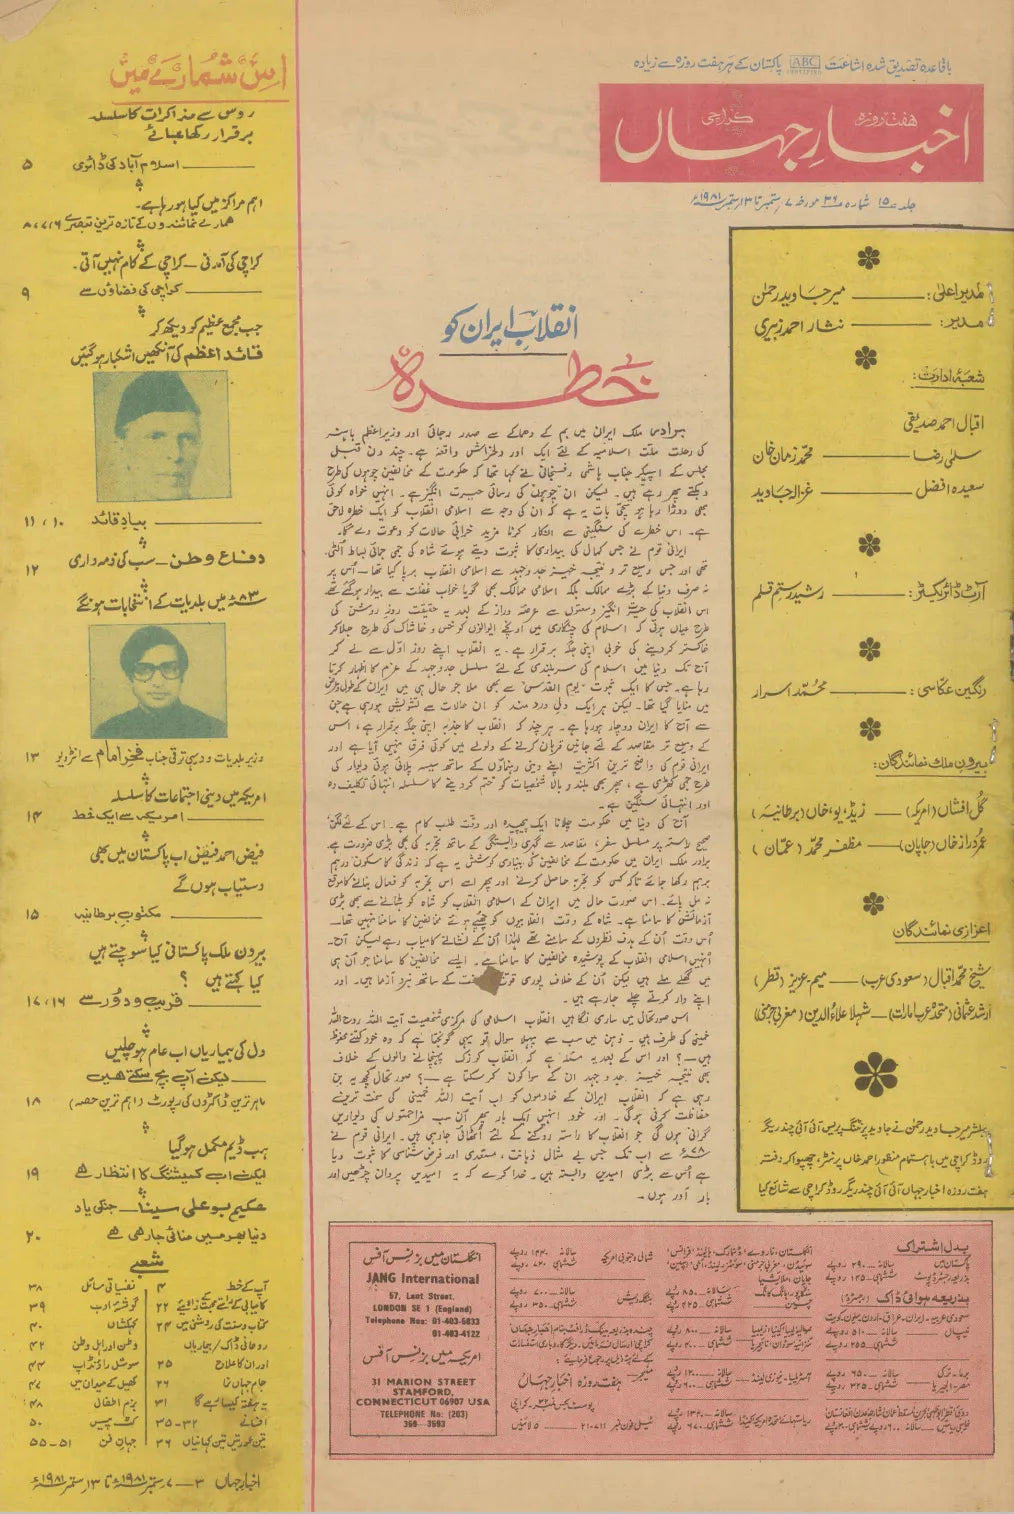 باقاعدہ تصدیق شدہ اشاعت ABC پاکستان کے ہر ہفت روزہ سے زیادہ
ہفت روزہ اخبارِ جہاں کراچی
جلد ۱۵ شمارہ ۳۶ مورخہ ۷ ستمبر تا ۱۳ ستمبر ۱۹۸۱ء
مدیر اعلیٰ: میر جاوید رحمٰن
مدیر: نثار احمد زبیری
شعبۂ ادارت:
اقبال احمد صدیقی
سلمیٰ رضا — محمد زمان خان
سعیدہ افضل — غزالہ جاوید
آرٹ ڈائریکٹر: رشید رستم قلم
رنگین عکاسی: محمد اسرار
بیرون ملک نمائندگان:
گل افشاں (امریکہ) — زیڈ، یو، خان (برطانیہ)
عمر دراز خاں (جاپان) — مظفر محمد (عمان)
اعزازی نمائندگان
شیخ محمد اقبال (سعودی عرب) — میم عزیز (قطر)
ارشد عثمانی (متحدہ عرب امارات) — شہلا علاؤالدین (مغربی جرمنی)
پبلشر میر جاوید رحمٰن نے جاوید پرنٹنگ پریس آئی آئی چندریگر
روڈ کراچی میں باہتمام منظور احمد خاں پرنٹر، چھپوا کر دفتر
ہفت روزہ اخبار جہاں آئی آئی چندریگر روڈ کراچی سے شائع کیا
انقلابِ ایران کو
خطرہ
برادر ملک ایران میں بم کے دھماکے سے صدر رجائی اور وزیر اعظم باہنر
کی رحلت ملت اسلامیہ کے لئے ایک اور دلخراش واقعہ ہے۔ چند دن قبل
مجلس کے اسپیکر جناب ہاشمی رفسنجانی نے کہا تھا کہ حکومت کے مخالفین چوہوں کی طرح
دبکتے پھر رہے ہیں۔ لیکن ان "چوہوں" کی رسائی حیرت انگیز ہے۔ انہیں خواہ کوئی
بھی دوڑا رہا ہو سچی بات یہ ہے کہ ان کی وجہ سے اسلامی انقلاب کو ایک خطرہ لاحق
ہے۔ اس خطرے کی سنگینی سے انکار کرنا مزید خرابی حالات کو دعوت دے گا۔
ایرانی قوم نے جس کمال کی بیداری کا ثبوت دیتے ہوئے شاہ کی جمی جمائی بساط الٹی
تھی اور جس وسیع تر و نتیجہ خیز جدوجہد سے اسلامی انقلاب برپا کیا تھا۔ اُس پر
نہ صرف دنیا کے بڑے ممالک بلکہ اسلامی ممالک بھی گویا خواب غفلت سے بیدار ہو گئے تھے
اس انقلاب کی حیرت انگیز وسعتوں سے عرصہ دراز کے بعد یہ حقیقت روز روشن کی
طرح عیاں ہوئی کہ اسلام کی چنگاری میں اونچے ایوانوں کو خس و خاشاک کی طرح جلا کر
خاکستر کر دینے کی خوبی اپنی جگہ برقرار ہے۔ یہ انقلاب اپنے روز اول سے لے کر
آج تک دنیا میں اسلام کی سربلندی کے لئے مسلسل جدوجہد کے عزم کا اظہار کرتا
رہا ہے۔ جس کا ایک ثبوت "یوم القدس" سے بھی ملا جو حال ہی میں ایران کے طول و عرض
میں منایا گیا تھا۔ لیکن ہر ایک دلِ درد مند کو ان حالات سے تشویش ہو رہی ہے جن
سے آج کا ایران دوچار ہو رہا ہے۔ ہر چند کہ انقلاب کا جذبہ اپنی جگہ برقرار ہے، اس
کے وسیع تر مقاصد کے لئے جانیں قربان کرنے کے ولولے میں کوئی فرق نہیں آیا ہے اور
ایرانی قوم کی واضح ترین اکثریت اپنے دینی رہنماؤں کے ساتھ سیسہ پلائی ہوئی دیوار کی
طرح جمی کھڑی ہے، پھر بھی بلند و بالا شخصیات کو ختم کر دینے کا سلسلہ انتہائی تکلیف دہ
اور انتہائی سنگین ہے۔
آج کی دنیا میں حکومت چلانا ایک پیچیدہ اور دقت طلب کام ہے۔ اس کے لئے لگن
صحیح راستہ پر مسلسل سفر، مقاصد سے گہری وابستگی کے ساتھ تجربہ کی بھی بڑی ضرورت ہے
برادر ملک ایران میں حکومت کے مخالفین کی بنیادی کوشش یہ ہے کہ زندگی کا سکون درہم
برہم رکھا جائے تاکہ کسی کو تجربہ حاصل کرنے اور پھر اسے اس تجربہ کو فعال بنانے کا موقع
نہ مل پائے۔ اس صورت حال میں ایران کے اسلامی انقلاب کو شاہ کو ہٹانے سے بھی بڑی
آزمائش کا سامنا ہے۔ شاہ کے وقت انقلابیوں کو چھپے ہوئے مخالفین کا سامنا نہیں تھا—
اُس وقت اُن کے ہدف نظروں کے سامنے تھے لہٰذا اُن کے نشانے کامیاب رہے لیکن آج۔
اُنہیں اسلامی انقلاب کے پوشیدہ مخالفین کا سامنا ہے۔ ایسے مخالفین کا سامنا جو اُن ہی
میں گھلے ملے ہیں۔ لیکن اُن کے خلاف پوری قوت کے ساتھ نبرد آزما ہیں۔ اور
اپنے وار کرتے چلے جا رہے ہیں۔
اس صورتحال میں ساری نگاہیں انقلاب اسلامی کی مرکزی شخصیت آیت اللہ روح اللہ
خمینی کی طرف ہیں۔ ذہن میں سب سے پہلا سوال تو یہی گونجتا ہے کہ وہ خود کتنے محفوظ
ہیں—؟ اور اس کے بعد یہ مسئلہ ہے کہ انقلاب کو زک پہنچانے والوں کے خلاف
بھی نتیجہ خیز جدوجہد ان کے سوا کون کر سکتا ہے—؟ صورتحال کچھ یہ بن
رہی ہے کہ انقلاب ایران کے خادموں کو اب آیت اللہ خمینی کی سخت ترین سے
حفاظت کرنی ہوگی۔ اور خود انہیں ایک بار پھر اُن سب مزاحمتوں کی دیواریں
گرانی ہوں گی جو انقلاب کا راستہ روکنے کے لئے اُٹھائی جا رہی ہیں۔ ایرانی قوم نے
۶۷۸ سے اب تک جس بے مثال ذہانت، مستعدی اور فرض شناسی کا ثبوت دیا
ہے اُس سے بڑی امیدیں وابستہ ہیں۔ خدا کرے کہ یہ امیدیں پروان چڑھیں اور
بار آور ہوں۔
اس شمارے میں
روس سے مذاکرات کا سلسلہ
برقرار رکھا جائے
اسلام آباد کی ڈائری ۵
اہم مراکز میں کیا ہو رہا ہے۔
ہمارے نمائندوں کے تازہ ترین تبصرے ۶، ۷، ۸
کراچی کی آمدنی — کراچی کے کام نہیں آتی۔
کراچی کی فضاؤں سے ۹
جب مجمع عظیم کو دیکھ کر
قائد اعظم کی آنکھیں اشکبار ہو گئیں
بیادِ قائد ۱۰، ۱۱
دفاع وطن — سب کی ذمہ داری ۱۲
۸۳ء میں بلدیات کے انتخابات ہونگے
وزیر بلدیات و دیہی ترقی جناب فخر امام سے انٹرویو ۱۳
امریکہ میں دینی اجتماعات کا سلسلہ
امریکہ سے ایک خط ۱۴
فیض احمد فیض اب پاکستان میں بھی
دستیاب ہوں گے
مکتوب برطانیہ ۱۵
بیرون ملک پاکستانی کیا سوچتے ہیں
کیا کہتے ہیں ؟
قریب و دور سے ۱۶، ۱۷
دل کی بیماریاں اب عام ہو چلیں
لیکن آپ بچ سکتے ہیں
ماہر ترین ڈاکٹروں کی رپورٹ (اہم ترین حصہ) ۱۸
حب ڈیم مکمل ہوگیا
لیکن اب کمیشننگ کا انتظار ہے ۱۹
حکیم بو علی سینا — جنکی یاد
دنیا بھر میں منائی جا رہی ہے ۲۰
شعبے
آپ کے خط ۴
نفسیاتی مسائل ۳۸
گوشۂ ادب ۳۹
کتاب و سنت کی روشنی میں ۲۴
کہکشاں ۴۰
روحانی ڈاک / بیماریاں
اور ان کا علاج ۲۵
وطن اور اہل وطن ۴۲
سوشل راؤنڈ اپ ۴۴
جام جہاں نما ۲۶
کھیل کے میدان میں ۴۷
یہ ہفتہ کیسا رہے گا ۳۱
بزم اطفال ۴۸
افسانے ۳۲-۳۵
کٹ پیس ۵۰
تین عورتیں تین کہانیاں ۳۶
جہانِ فن ۵۱-۵۵
اخبار جہاں ۳ — ۷ ستمبر ۱۹۸۱ء تا ۱۳ ستمبر ۱۹۸۱ء
انگلستان میں بزنس آفس
JANG International
57, Lant Street,
LONDON SE 1 (England)
Telephone Nos: 01-403-5833
01-403-4122
امریکہ میں بزنس آفس
31 MARION STREET
STAMFORD,
CONNECTICUT 06907 USA
TELEPHONE No: (203)
بدل اشتراک
پاکستان میں
بذریعہ ہوائی ڈاک (رجسٹرڈ)
ہفت روزہ اخبار جہاں